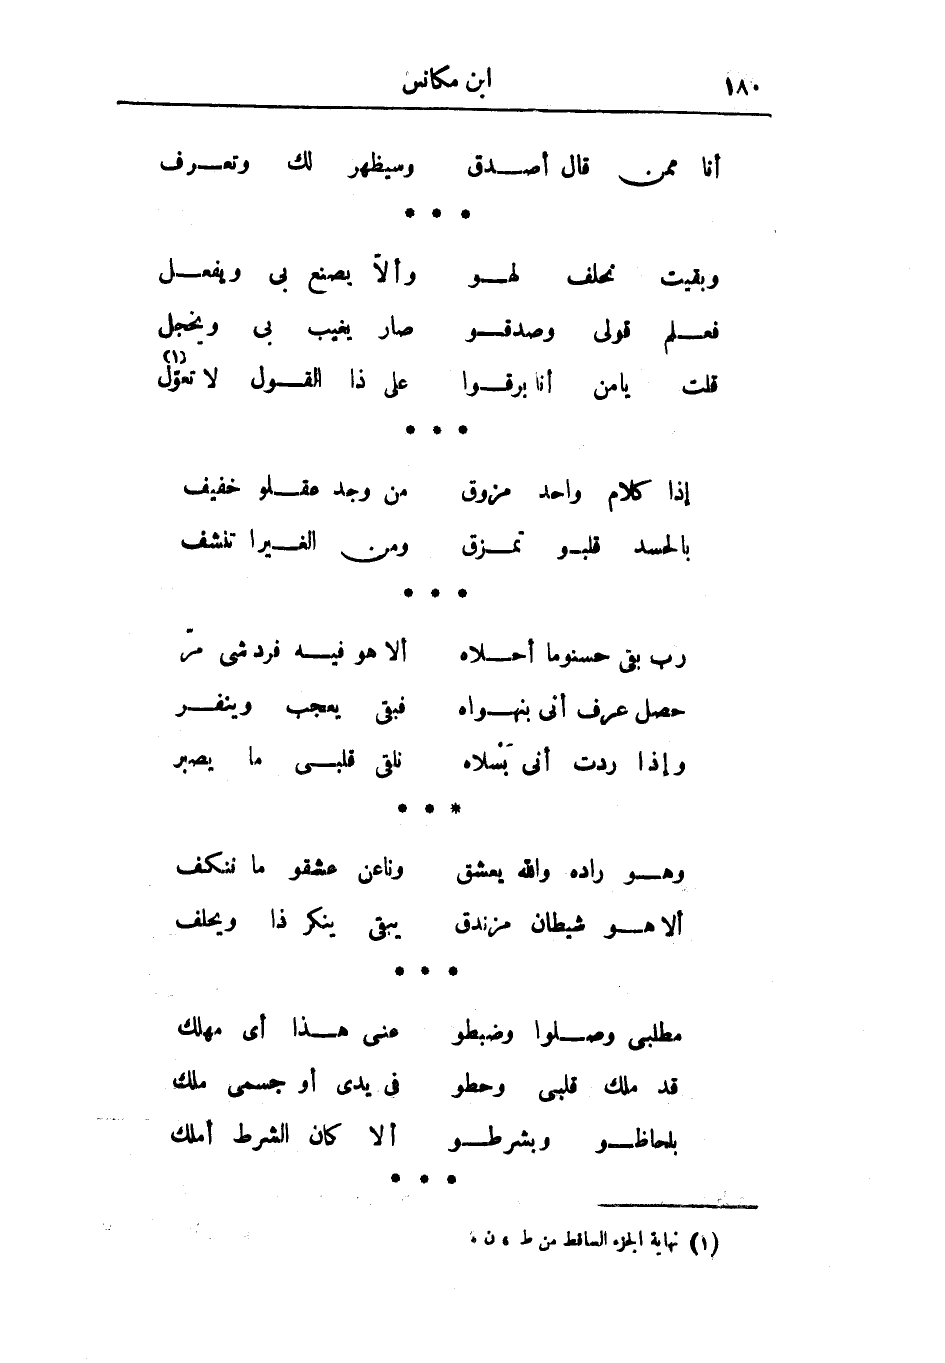 ١٨٠ ابن مكانس
أنا ممن قال أصدق وسيظهر لك وتعرف
* * *
وبقيت نحلف لهو وألاّ يصنع بى ويفعل
فعلم قولى وصدقو صار يغيب بى ويخجل
قلت يامن أنا برقوا على ذا القول لا تعوّل (١)
* * *
إذا كلام واحد مزوق من وجد عقلو خفيف
بالحسد قلبو تمزق ومن الغيرا تنشف
* * *
رب بقى حسنوما أحلاه ألا هو فيه فردشى مرّ
حصل عرف أنى بنهواه فبقى يعجب وينفر
وإذا ردت أنى نَسْلاه نلقى قلبى ما يصبر
* * *
وهو راده والله يعشق وناعن عشقو ما ننكف
ألا هو شيطان مزندق يبقى ينكر ذا ويحلف
* * *
مطلبى وصلوا وضبطو عنى هذا أى مهلك
قد ملك قلبى وحطو فى يدى أو جسمى ملك
بلحاظو وبشرطو ألا كان الشرط أملك
* * *
(١) نهاية الجزء الساقط من ط ، ن ،